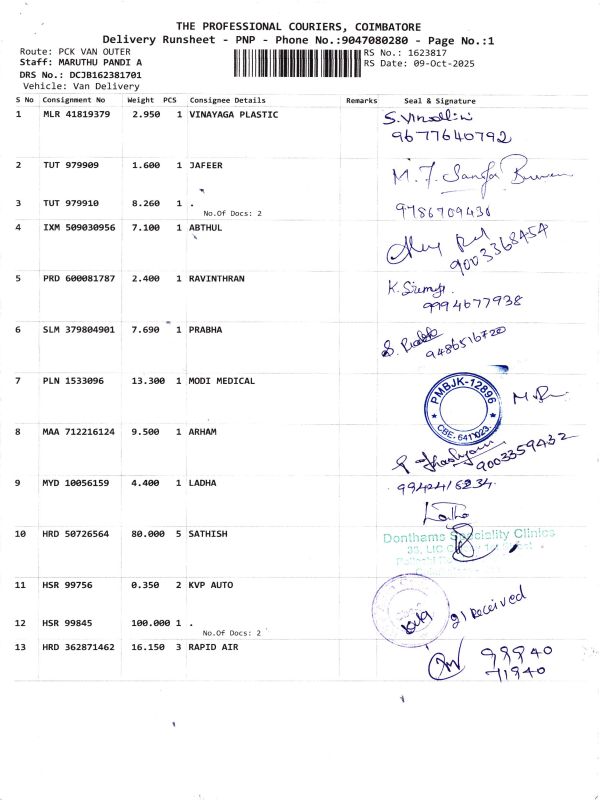 THE PROFESSIONAL COURIERS, COIMBATORE
Delivery Runsheet - PNP - Phone No.:9047080280 - Page No.:1
Route: PCK VAN OUTER RS No.: 1623817
Staff: MARUTHU PANDI A RS Date: 09-Oct-2025
DRS No.: DCJB162381701
Vehicle: Van Delivery
S No Consignment No Weight PCS Consignee Details Remarks Seal & Signature
1 MLR 41819379 2.950 1 VINAYAGA PLASTIC
9677640792
2 TUT 979909 1.600 1 JAFEER
M.
3 TUT 979910 8.260 1 . 9786709430
No.Of Docs: 2
4 IXM 509030956 7.100 1 ABTHUL
9003368454
5 PRD 600081787 2.400 1 RAVINTHRAN
9994677938
6 SLM 379804901 7.690 1 PRABHA
9486516720
7 PLN 1533096 13.300 1 MODI MEDICAL
PMBJK-12896
CBE-641023
8 MAA 712216124 9.500 1 ARHAM
9003359432
9 MYD 10056159 4.400 1 LADHA 9942416234
10 HRD 50726564 80.000 5 SATHISH Donthams Speciality Clinics
11 HSR 99756 0.350 2 KVP AUTO
21 received
12 HSR 99845 100.000 1 .
No.Of Docs: 2
13 HRD 362871462 16.150 3 RAPID AIR 99940
71940